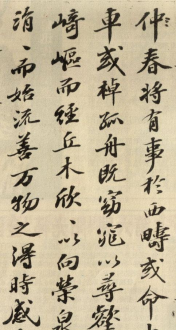 仲春将有事於西疇或命
車或棹孤舟既窈窕以尋壑
崎嶇而經丘木欣〻以向榮泉
涓〻而始流善万物之得時感